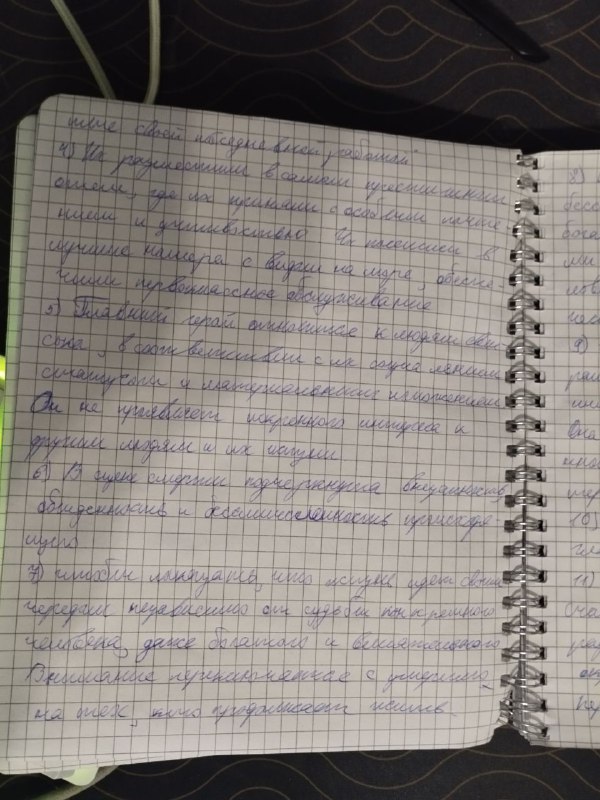 тые своей повседневной работой
4) Их разместили в самом престижным
отели, где их приняли с особым почте-
нием и учтивостью. Их поселили в
лучшие номера с видом на море, обеспе-
чили первоклассное обслуживание
5) Главный герой относится к людям свы-
сока, в соответствии с их социальным
статусом и материальным положением
Он не проявляет искреннего интереса к
другим людям и их жизни
6) В сцене смерти подчеркнута внезапность,
обыденность и бессмысленность происходя-
щего
7) чтобы показать, что жизнь идет своим
чередом независимо от судьбы конкретного
человека, даже богатого и влиятельного
Внимание переключается с умершего
на тех, кто продолжает жить.
8)
бесс
бога
ми
9)
вна
10)
11)